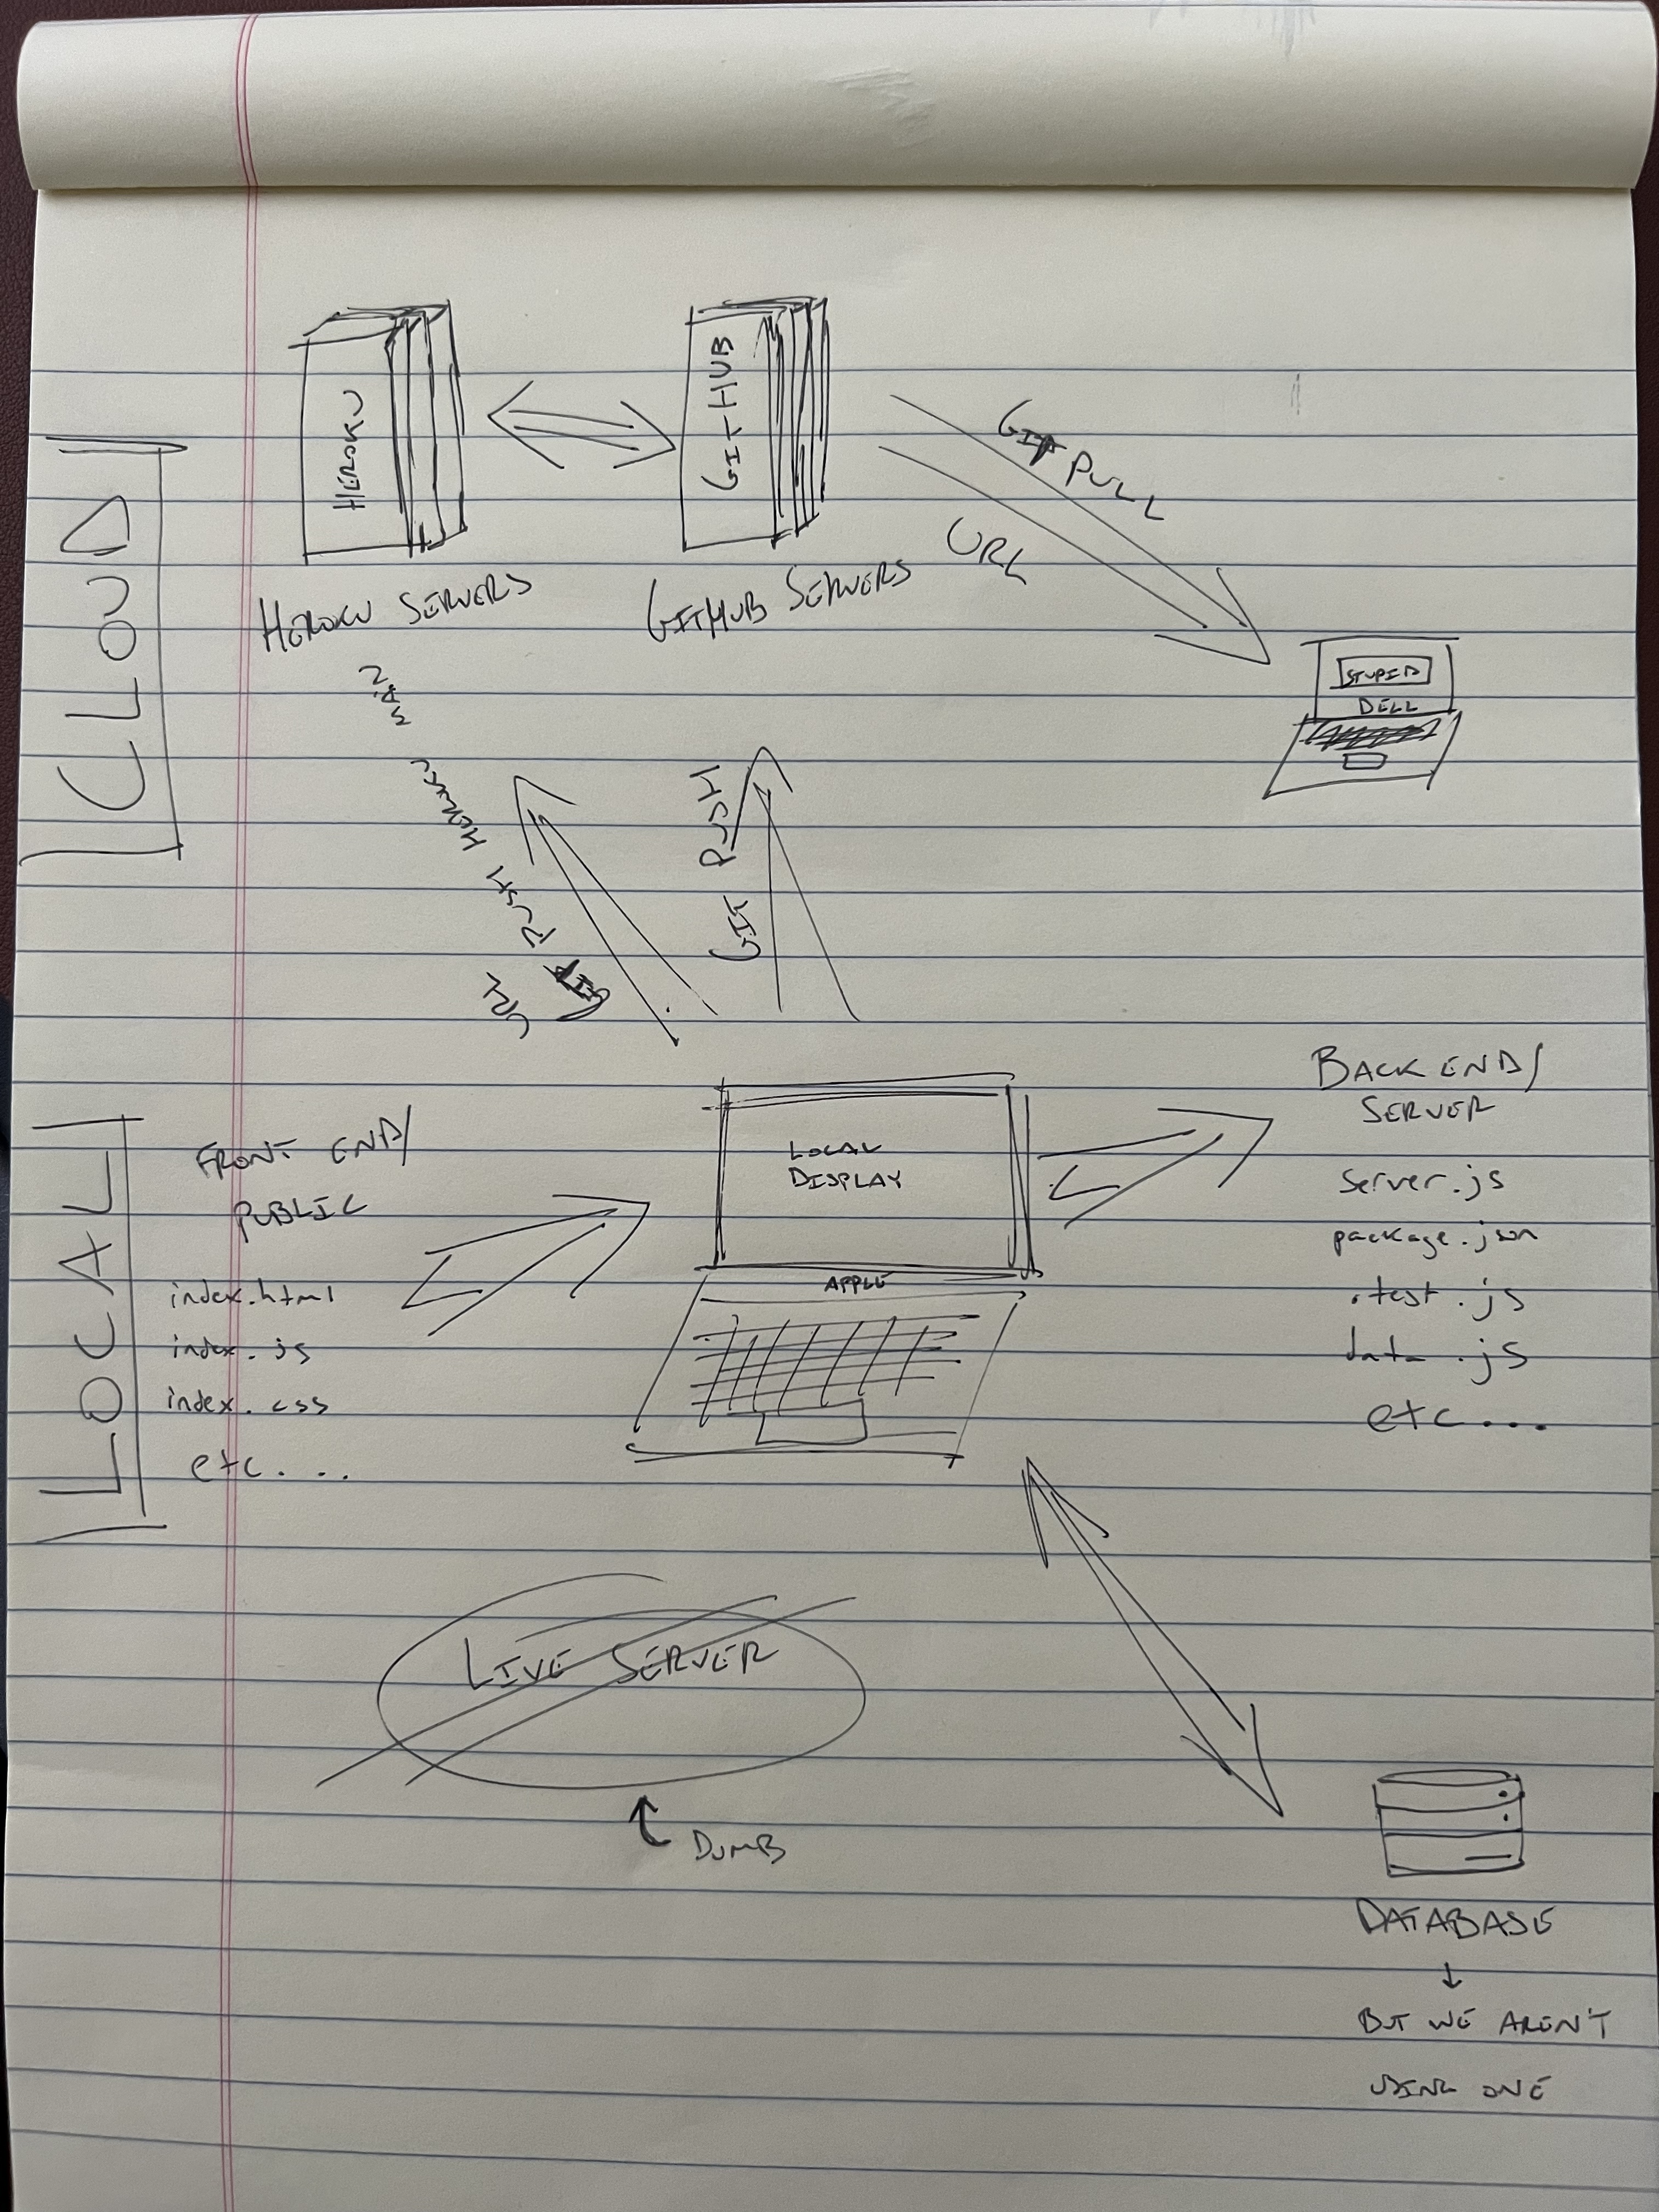 CLOUD
HEROKU
GITHUB
HEROKU SERVERS
GITHUB SERVERS
GIT PULL
URL
STUPID
DELL
GIT PUSH HEROKU MAIN
GIT PUSH
LOCAL
FRONT END/
PUBLIC
index.html
index.js
index.css
etc....
LOCAL
DISPLAY
APPLE
BACK END/
SERVER
server.js
package.json
.test.js
data.js
etc...
LIVE SERVER
DUMB
DATABASE
BUT WE AREN'T
USING ONE